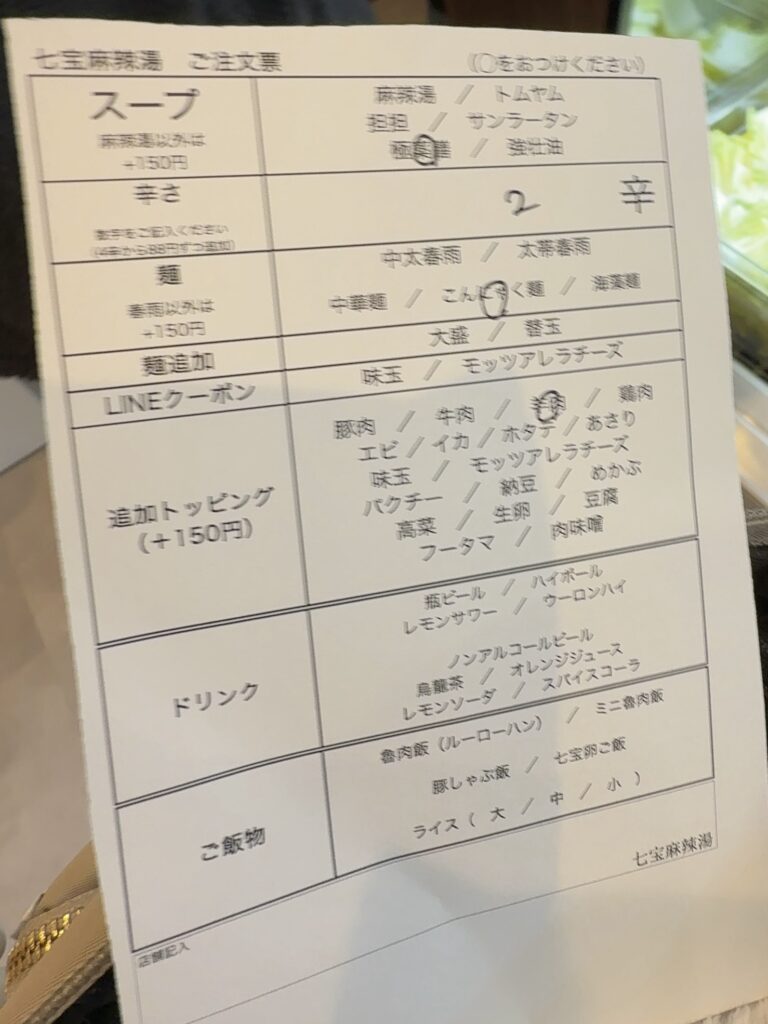 七宝麻辣湯 ご注文票 (○をおつけください)
スープ
麻辣湯以外は
+150円
麻辣湯 / トムヤム
担担 / サンラータン
極 華 / 強壮油
辛さ
数字をご記入ください
(4辛から88円ずつ追加)
2 辛
麺
春雨以外は
+150円
中太春雨 / 太帯春雨
中華麺 / こんにゃく麺 / 海藻麺
麺追加
大盛 / 替玉
LINEクーポン
味玉 / モッツアレラチーズ
追加トッピング
(+150円)
豚肉 / 牛肉 / 羊肉 / 鶏肉
エビ / イカ / ホタテ / あさり
味玉 / モッツアレラチーズ
パクチー / 納豆 / めかぶ
高菜 / 生卵 / 豆腐
フータマ / 肉味噌
ドリンク
瓶ビール / ハイボール
レモンサワー / ウーロンハイ
ノンアルコールビール
烏龍茶 / オレンジジュース
レモンソーダ / スパイスコーラ
ご飯物
魯肉飯(ルーローハン) / ミニ魯肉飯
豚しゃぶ飯 / 七宝卵ご飯
ライス( 大 / 中 / 小 )
七宝麻辣湯
店舗記入